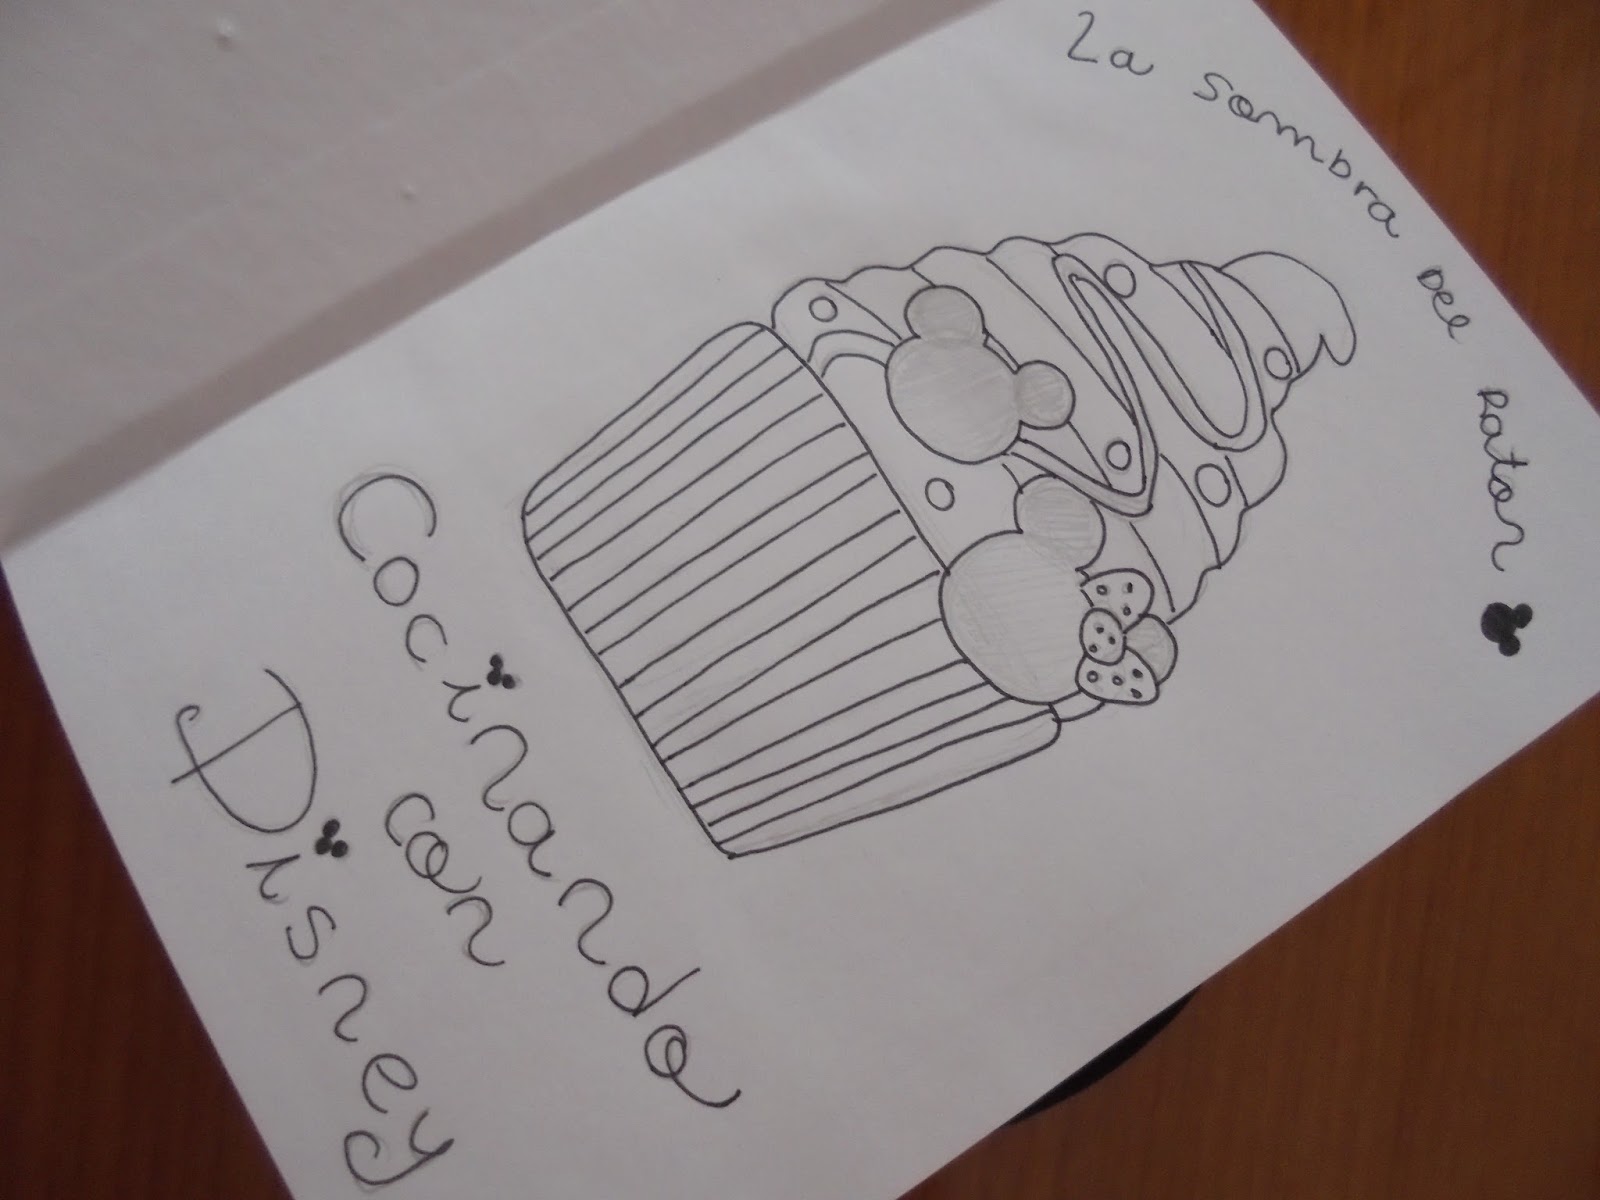 La sombra del Raton
Cocinando
con
Disney